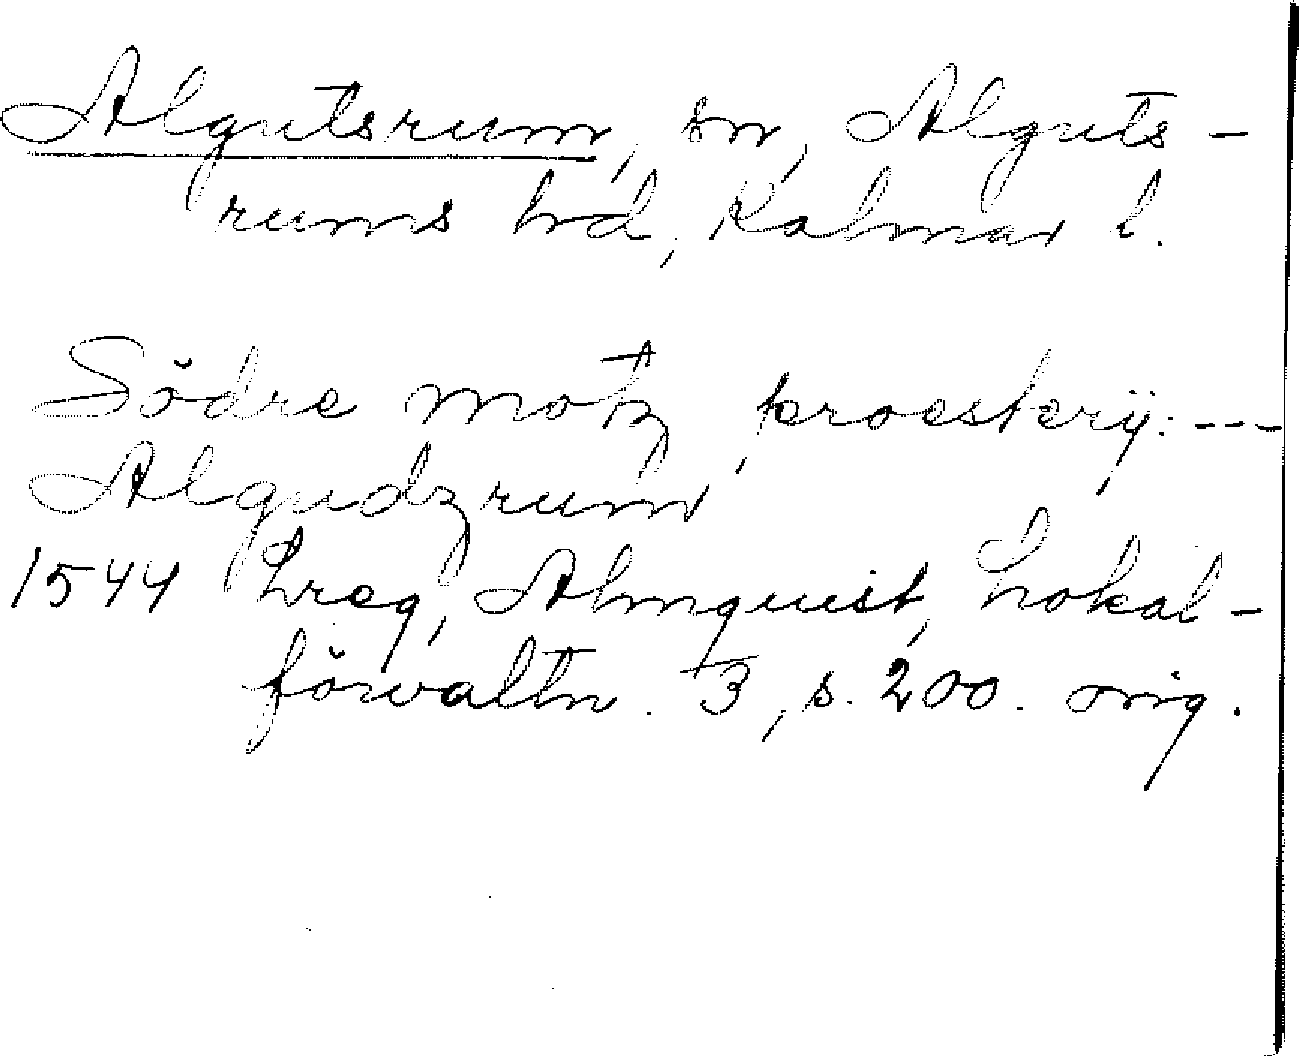 Algutsrum, sn, Alguts-
rums hd, Kalmar l.
Södre motz proesterij: ---
Algudzrum
1544 Lreg, Almquist, Lokal-
förvaltn. 3, s. 200. orig.